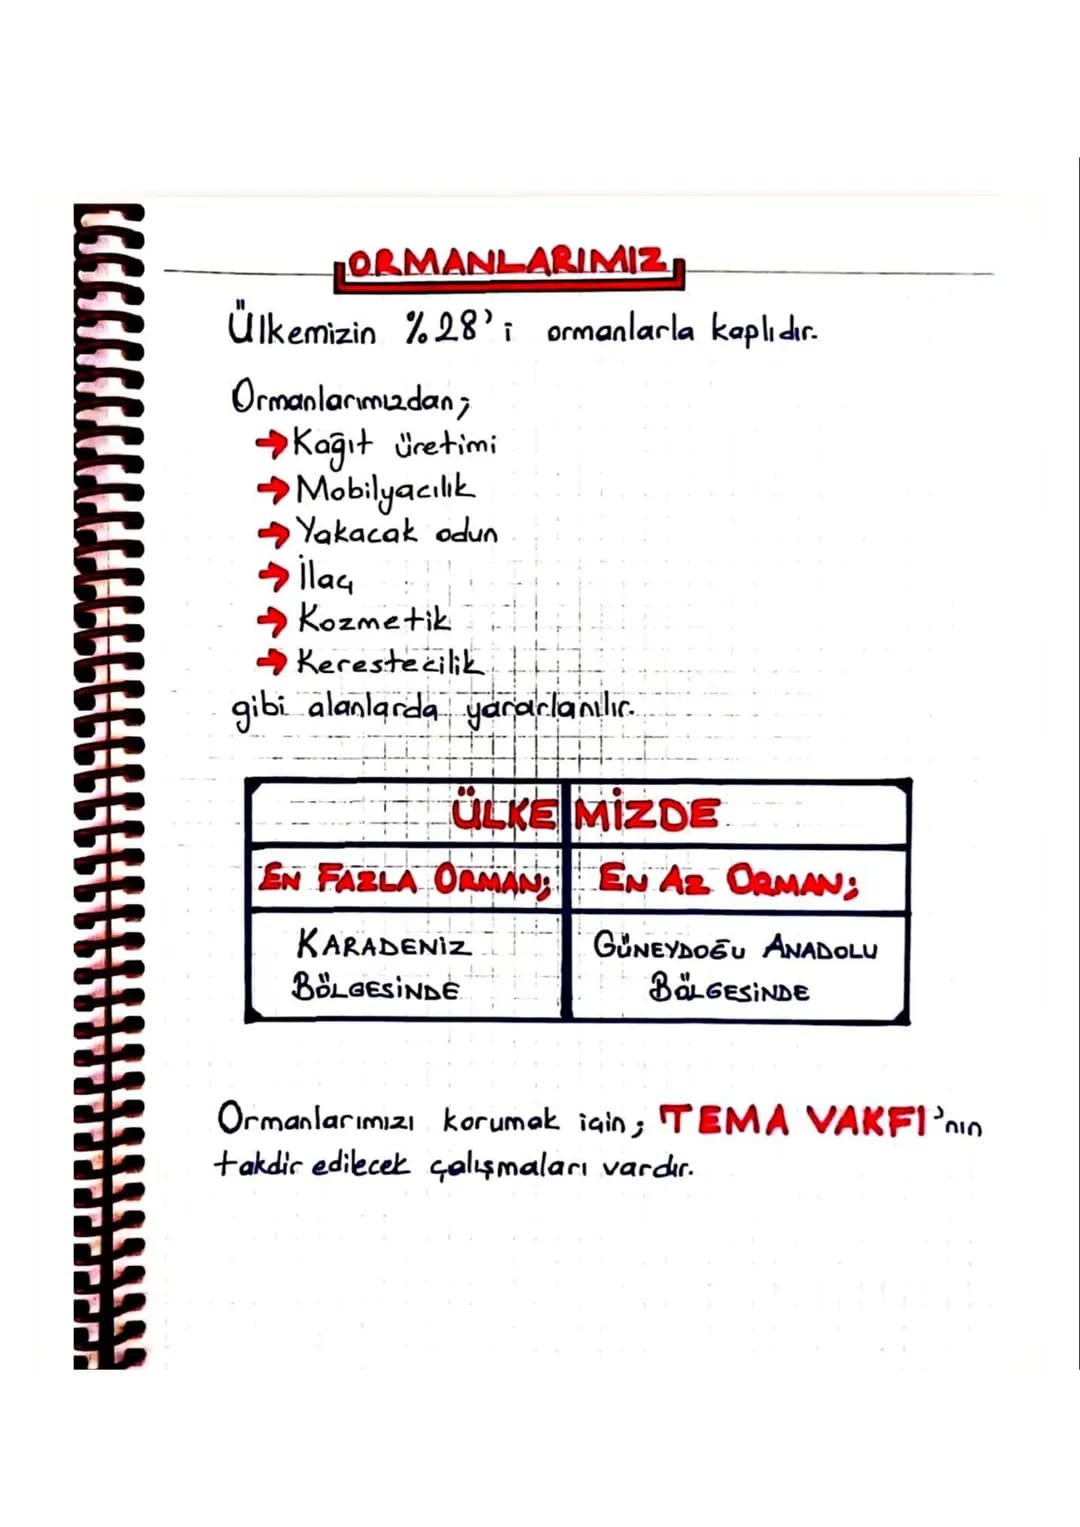 ORMANLARIMIZ
Ülkemizin %28'i ormanlarla kaplıdır.
Ormanlarımızdan;
→Kağıt üretimi
→Mobilyacılık
→Yakacak odun
→İlaç
→Kozmetik
→Kerestecilik
gibi alanlarda yararlanılır.
ÜLKEMİZDE
EN FAZLA ORMAN; EN AZ ORMAN;
KARADENİZ GÜNEYDOĞU ANADOLU
BÖLGESİNDE BÖLGESİNDE
Ormanlarımızı korumak için; TEMA VAKFI'nın
takdir edilecek çalışmaları vardır.